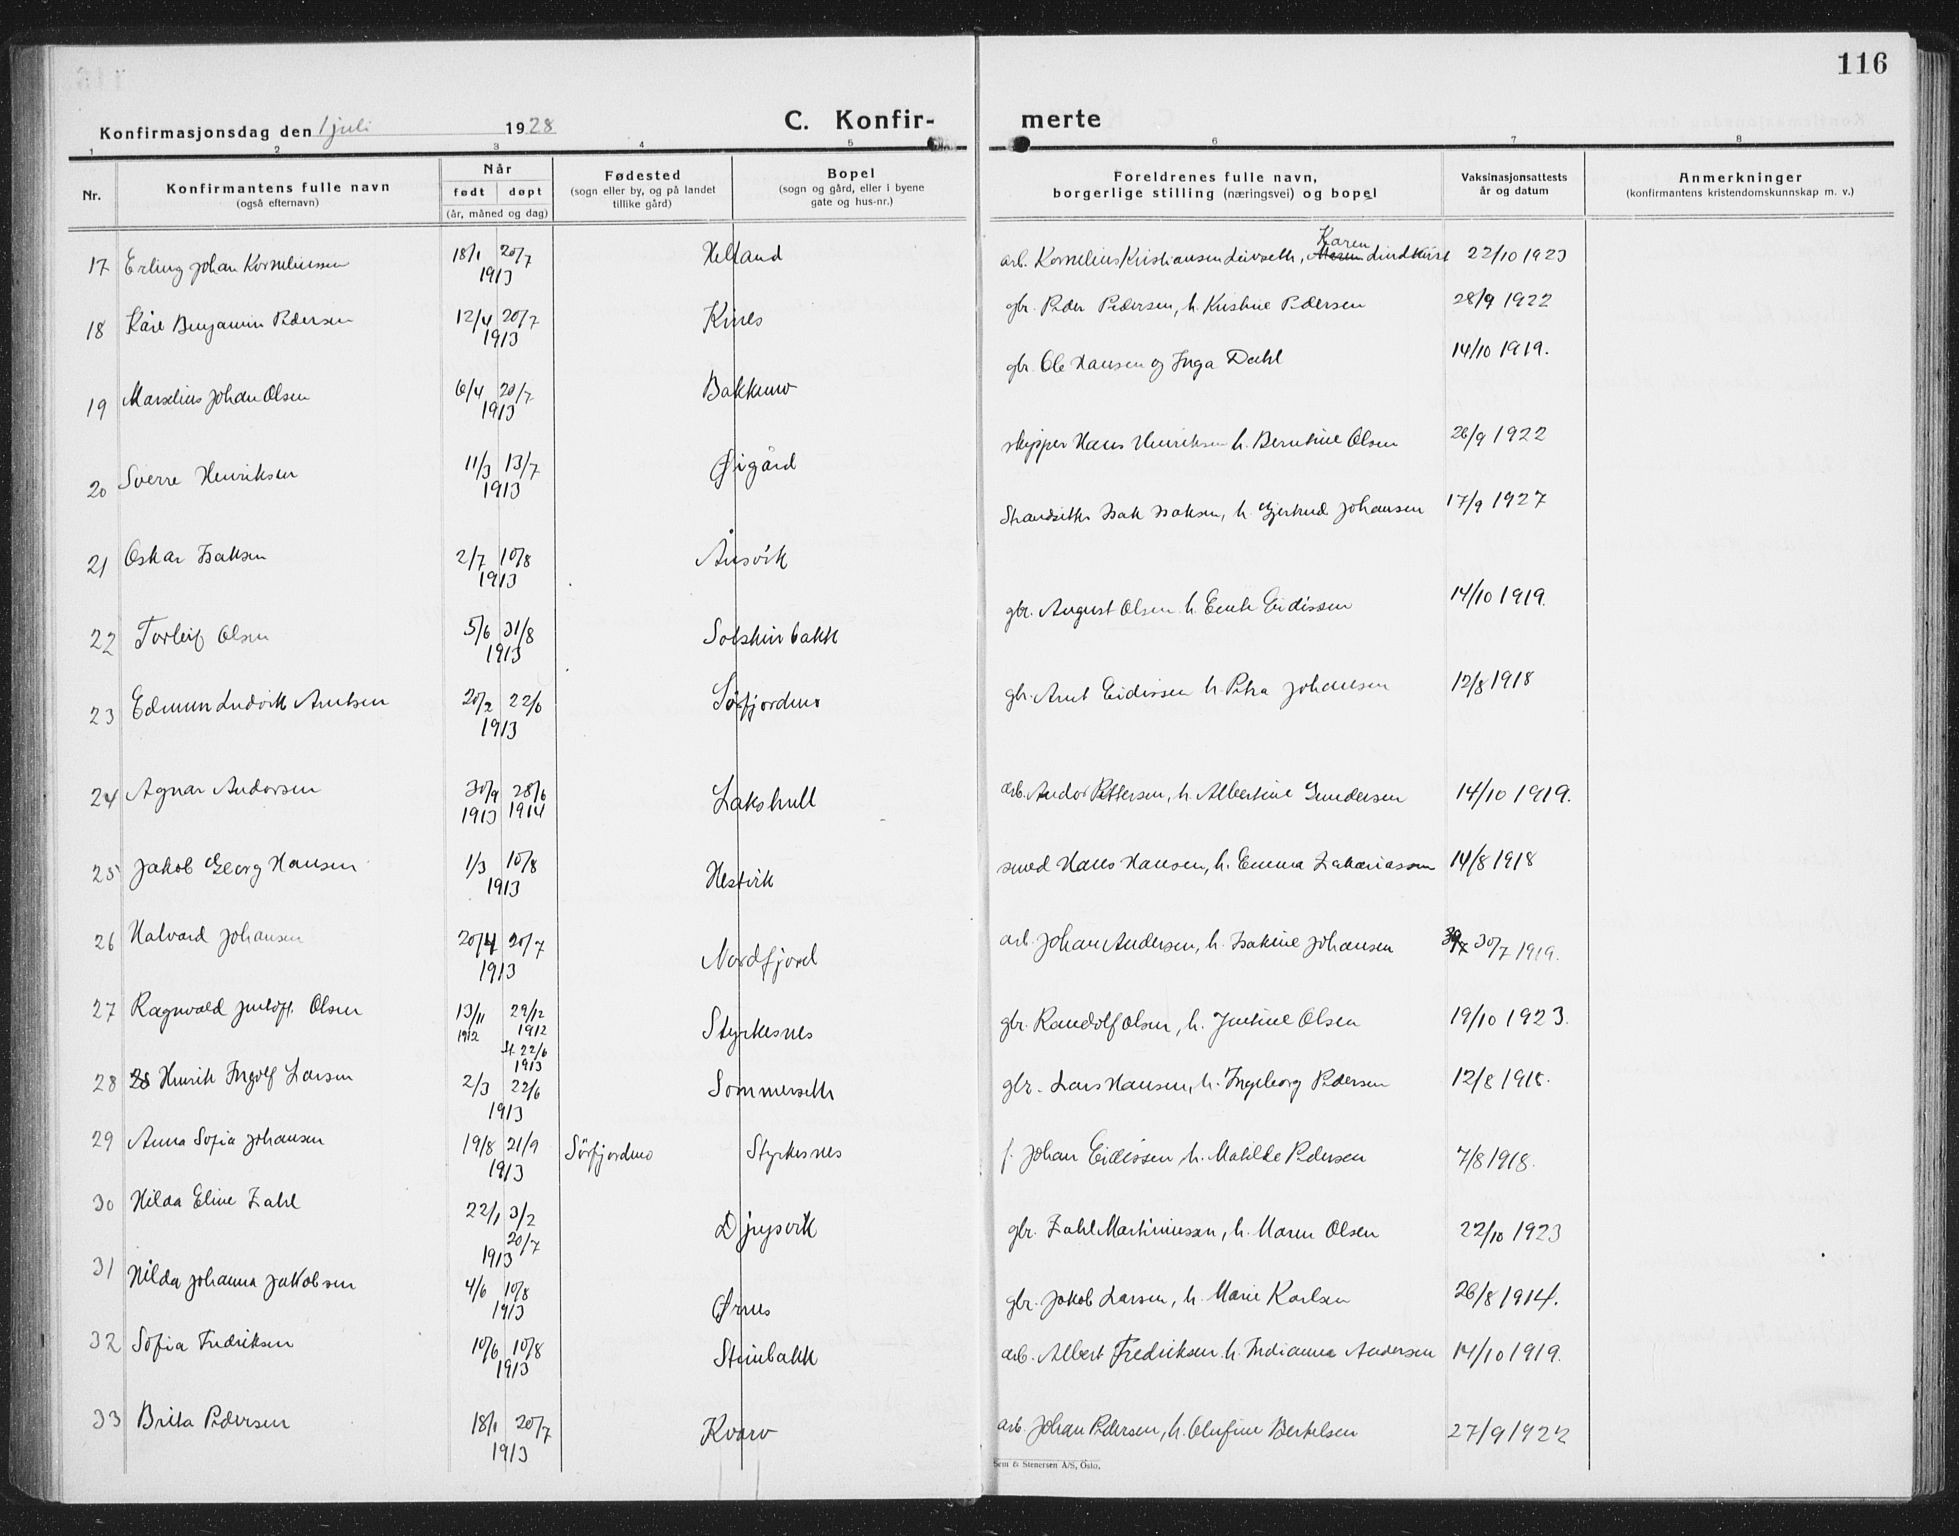 116
Konfirmasjonsdag den 1 juli 1928 C. Konfir- merte
1 2 3 4 5 6 7 8
Nr.
Konfirmantens fulle navn
(også efternavn)
Når
født døpt
(år, måned og dag)
Fødested
(sogn eller by, og på landet
tillike gård)
Bopel
(sogn og gård, eller i byene
gate og hus-nr.)
Foreldrenes fulle navn,
borgerlige stilling (næringsvei) og bopel
Vaksinasjonsattests
år og datum
Anmerkninger
(konfirmantens kristendomskunnskap m. v.)
17 Erling Johan Korneliussen 18/1 20/7 1913 Helland arb. Kornelius Kristiansen Livseth, Karen Lindkvist 22/10 1923
18 Kåre Benjamin Pedersen 12/4 20/7 1913 Kines gbr. Peder Pedersen, h. Kristine Pedersen 28/9 1922
19 Marselius Johan Olsen 6/4 20/7 1913 Bakkemo gbr. Ole Hansen og Inga Dahl 14/10 1919.
20 Sverre Henriksen 11/3 13/7 1913 Øigård skipper Hans Henriksen h. Berntine Olsen 26/9 1922
21 Oskar Isaksen 2/7 10/8 1913 Ånsvik Strandsitter Isak Isaksen, h. Gjertrud Johansen 17/9 1927
22 Torleif Olsen 5/6 31/8 1913 Solskinbakk gbr. August Olsen h. Eidissen 14/10 1919.
23 Edmun Ludvik Arntsen 20/2 22/6 1913 Sørfjordmo gbr. Arnt Eidissen h. Petra Johansen 12/8 1918
24 Agnar Andorsen 30/9 1913 28/6 1914 Lakshull arb. Andor Pettersen, h. Albertine Gundersen 14/10 1919.
25 Jakob Georg Hansen 1/3 10/8 1913 Hestvik smed Hans Hansen, h. Emma Zakariassen 14/8 1918
26 Halvard Johansen 20/4 20/7 1913 Nordfjord arb. Johan Andersen, h. Isakine Johansen 30/7 30/7 1919.
27 Ragnvald Justoft. Olsen 13/11 1912 29/12 1912 st. 22/6 1913 Styrkesnes gbr. Randolf Olsen, h. Justine Olsen 19/10 1923.
28 28 Henrik Ingolf Larsen 2/3 22/6 1913 Sommerseth gbr. Lars Hansen, h. Ingeborg Pedersen 12/8 1918.
29 Anna Sofia Johansen 19/8 21/9 1913 Sørfjordmo Styrkesnes f. Johan Eidissen h. Matilde Pedersen 7/8 1918.
30 Hilda Eline Zahl 22/1 3/2 20/7 1913 Djupvik gbr. Zahl Martinussen, h. Maren Olsen 22/10 1923
31 Hilda Johanna Jakobsen 4/6 10/8 1913 Ørnes gbr. Jakob Larsen, h. Marie Karlsen 26/8 1914.
32 Sofia Fredriksen 10/6 10/8 1913 Steinbakk arb. Albert Fredriksen h. Indianna Andersen 14/10 1919.
33 Brita Pedersen 18/1 20/7 1913 Kvarv arb. Johan Pedersen, h. Olufine Bertelsen 27/9 1922
Sem & Stenersen A/S, Oslo.